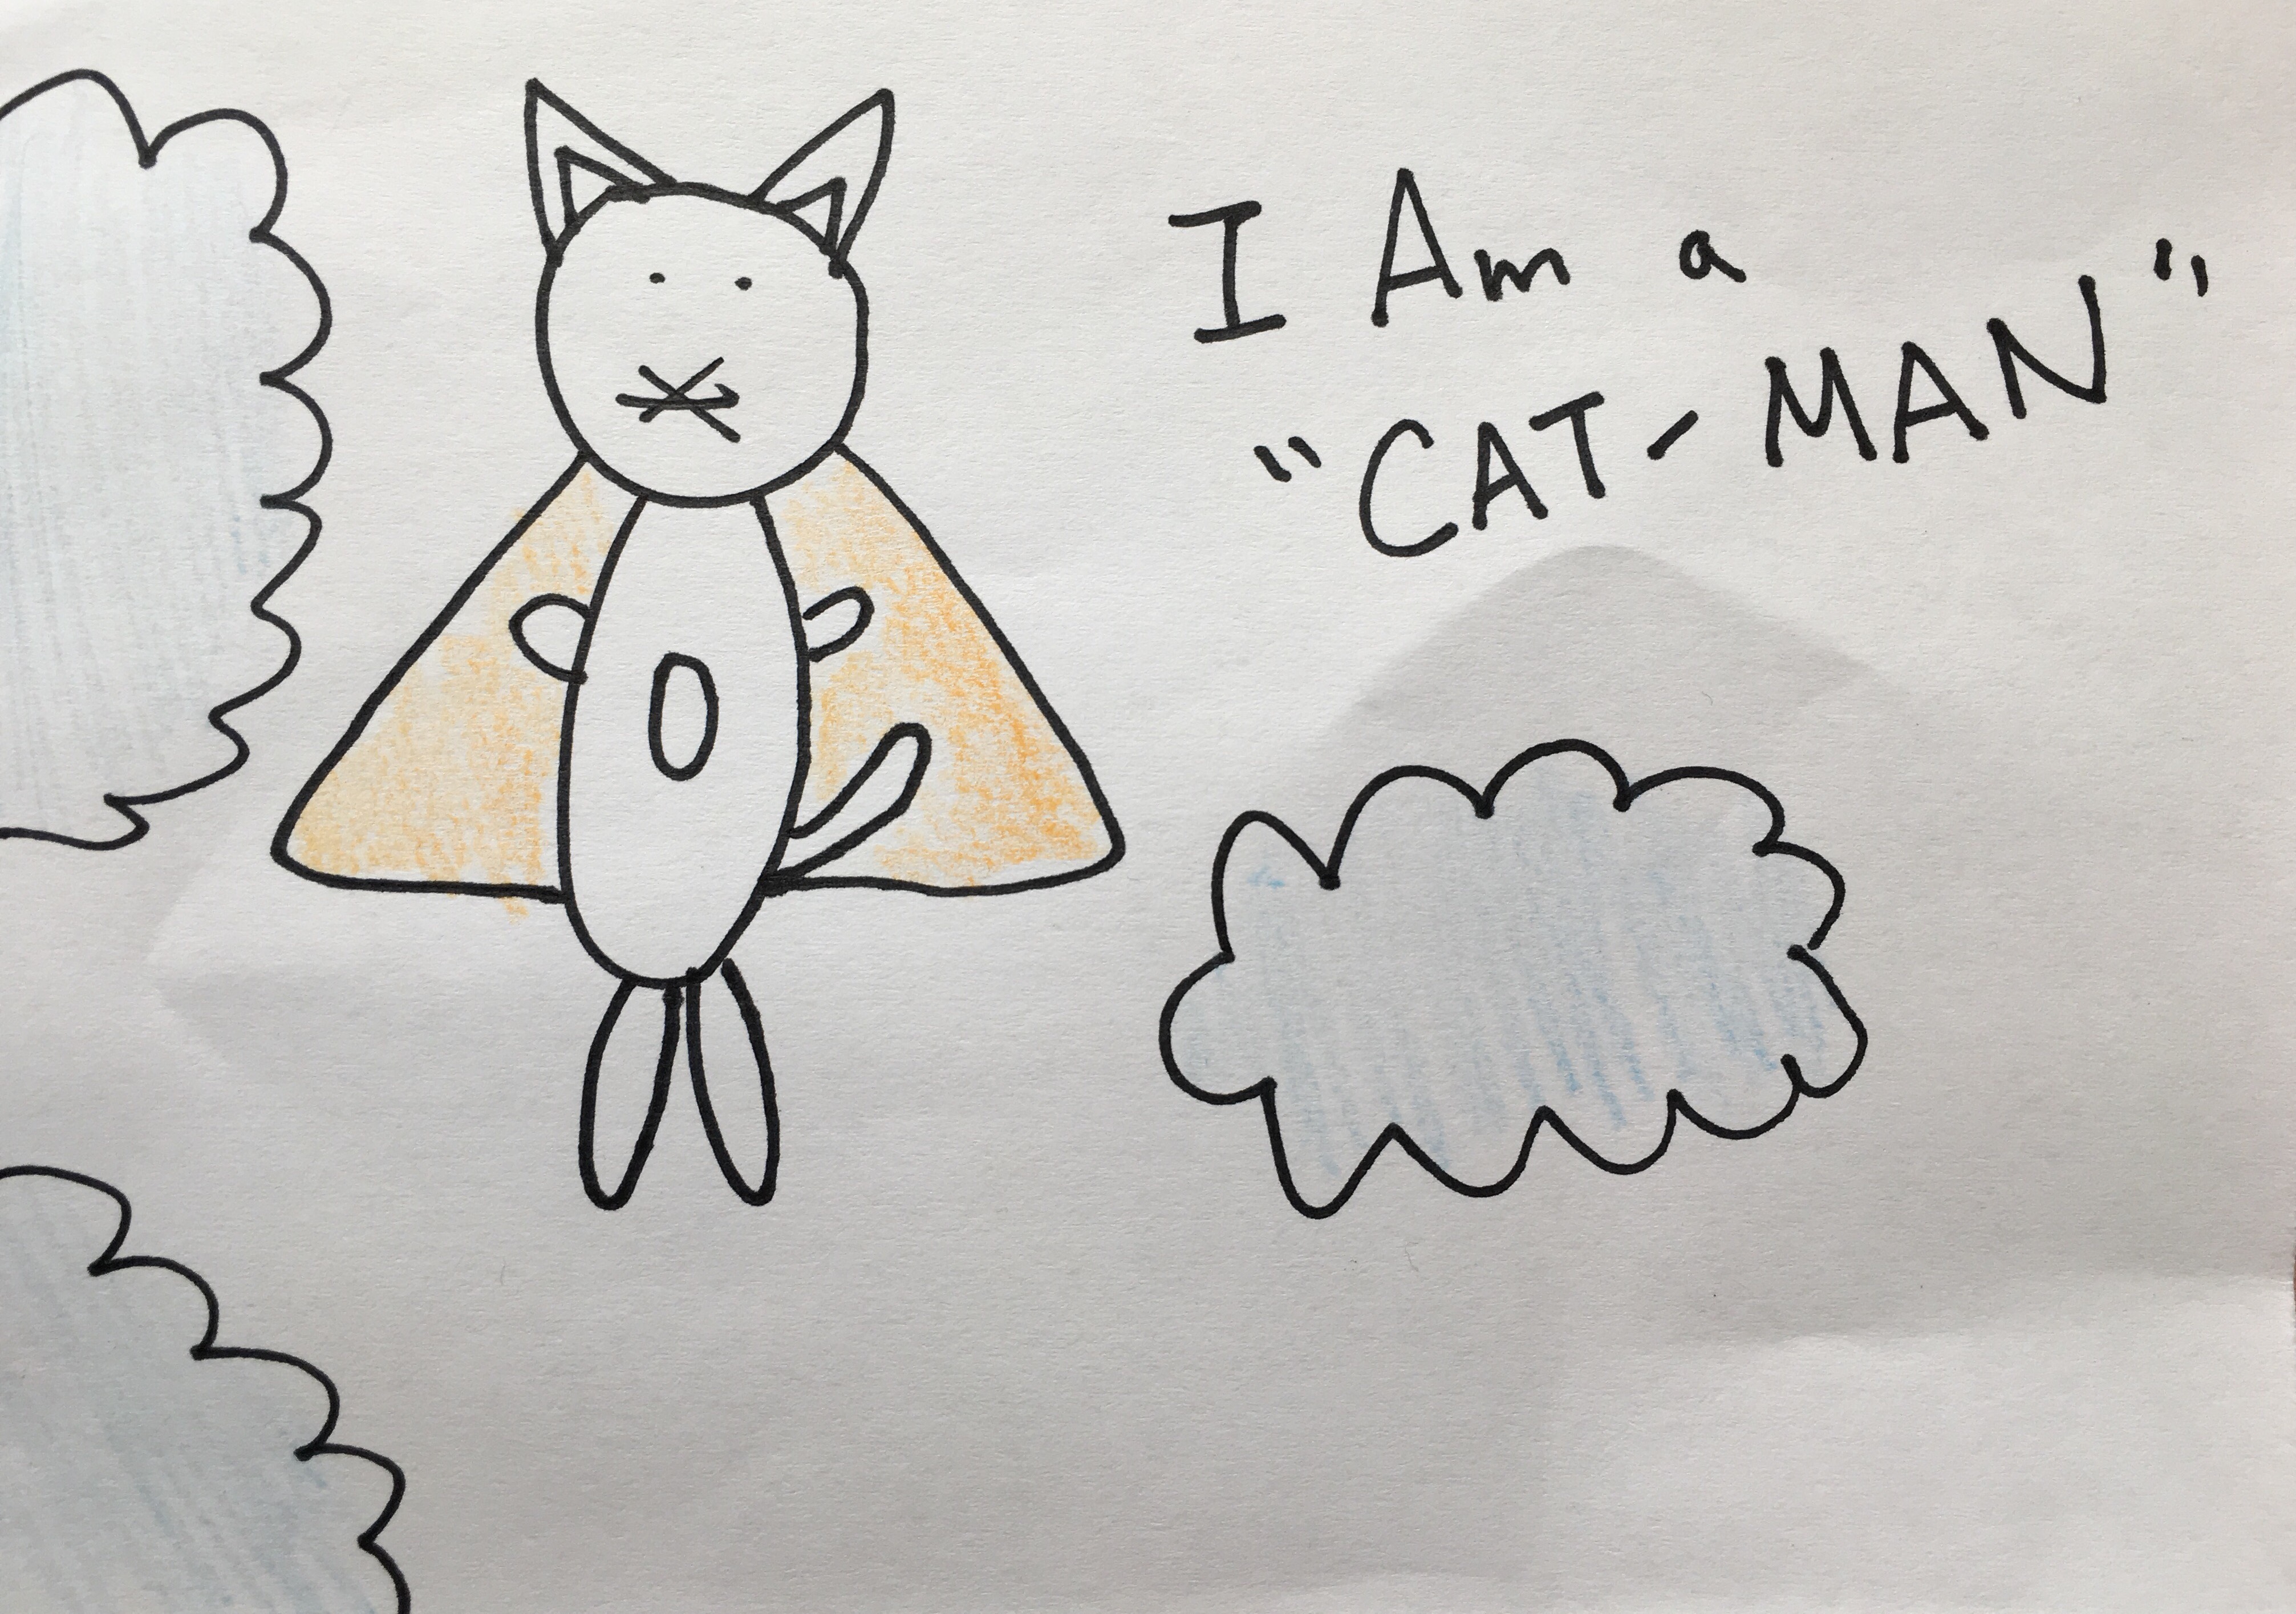 I Am a
"CAT-MAN"